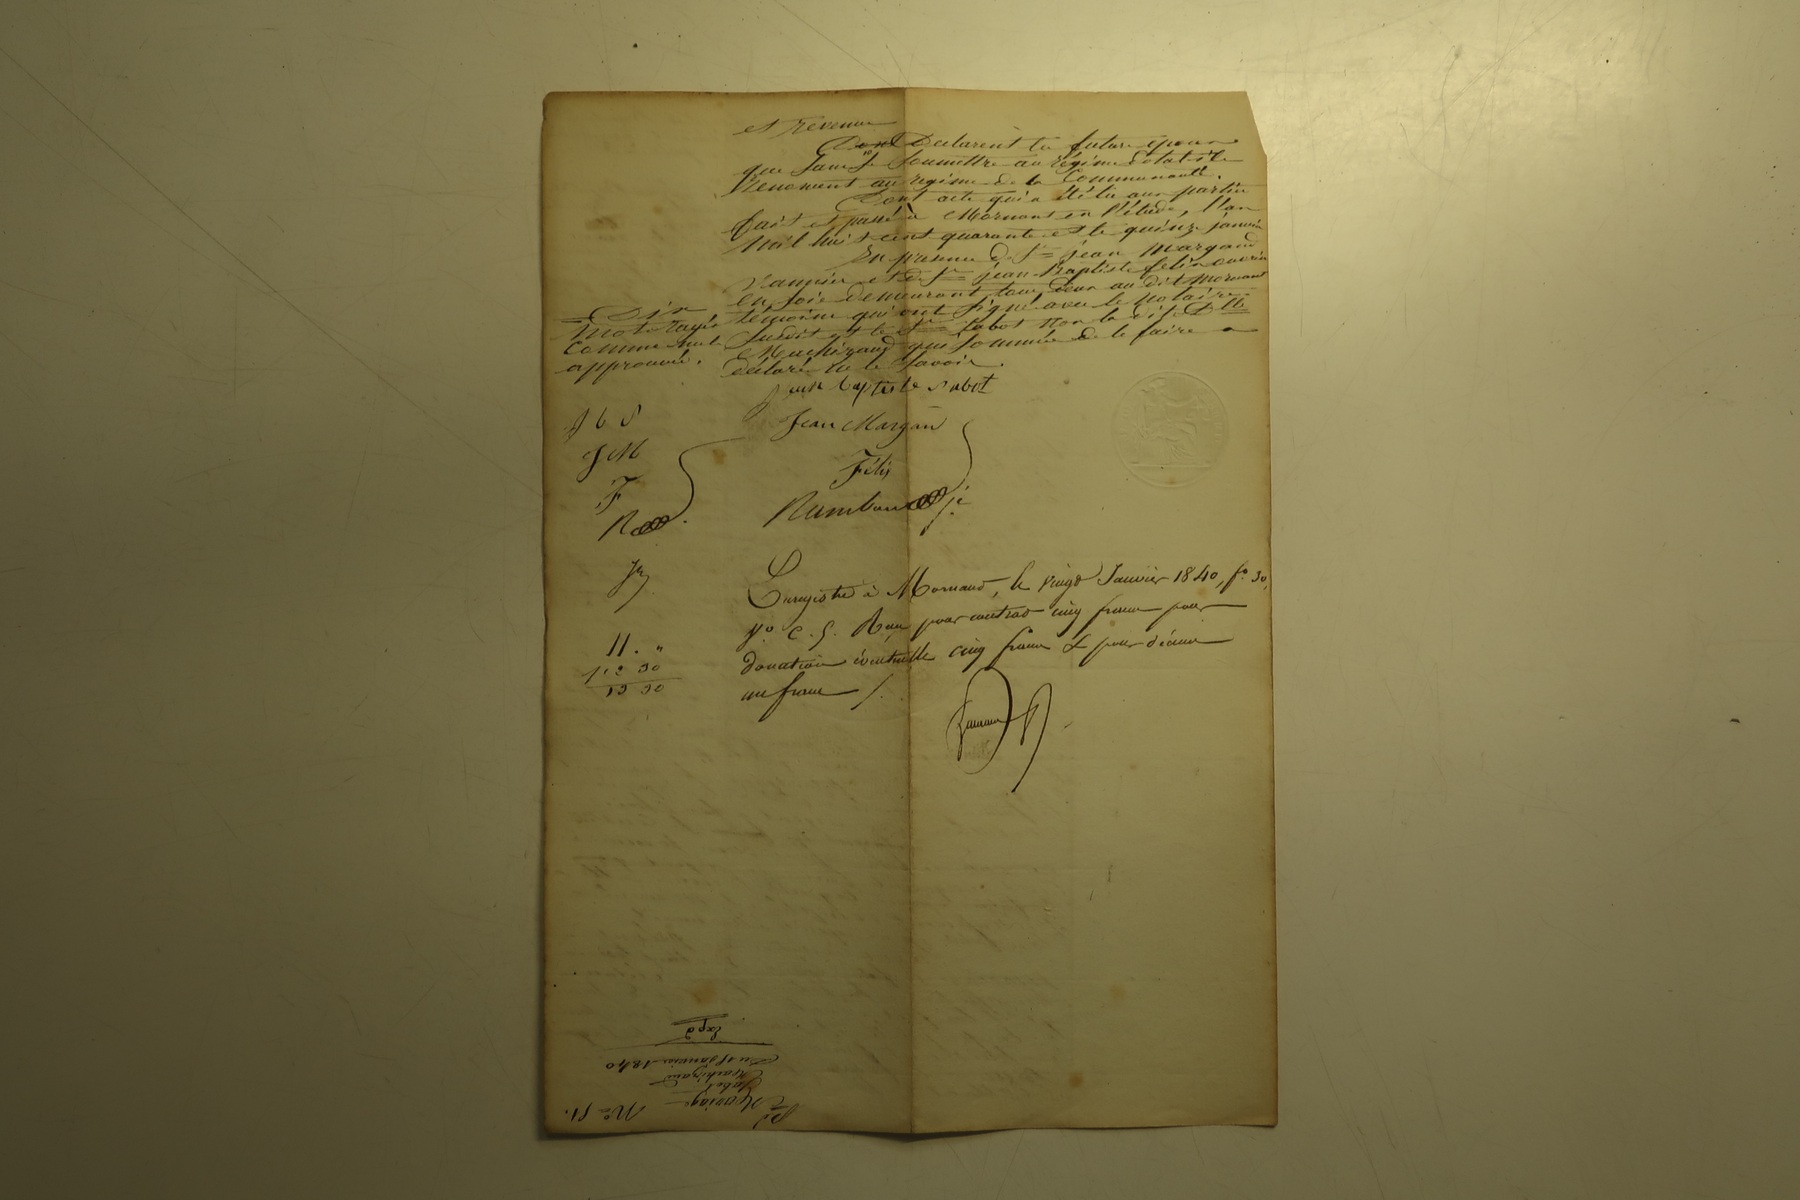 et revenu
Dont Declarent les futurs époux
que sans se soumettre au régime dotal ils
Renoncent au régime de la Communauté.
Dont acte qui a été lu aux parties
fait et passé à Mornant en l'étude, l'an
Mil huit cent quarante et le quinze janvier
En présence de Sr jean Margand
Vannier et de Sr jean-Baptiste félix ouvrier
en soie demeurant tous deux au dit Mornant
témoins qui ont signé avec le notaire
susdit et le Sr Sabot non la dite Dlle
Machizaud qui sommée de le faire a
déclaré ne le savoir
Dix
mots rayés
comme nuls
approuvé.
jean baptiste sabot
Jean Margan
Félix
J b S
J M
F
R
Enregistré à Mornant, le vingt Janvier 1840, fo 30,
Vo C. 5. Reçu pour contrat cinq francs pour
donation éventuelle cinq francs & pour décime
un franc /.
11. "
1,2 30
13 30
No 51.
Mariage
Sabot
Machizaud
Du 15 Janvier 1840
Expd